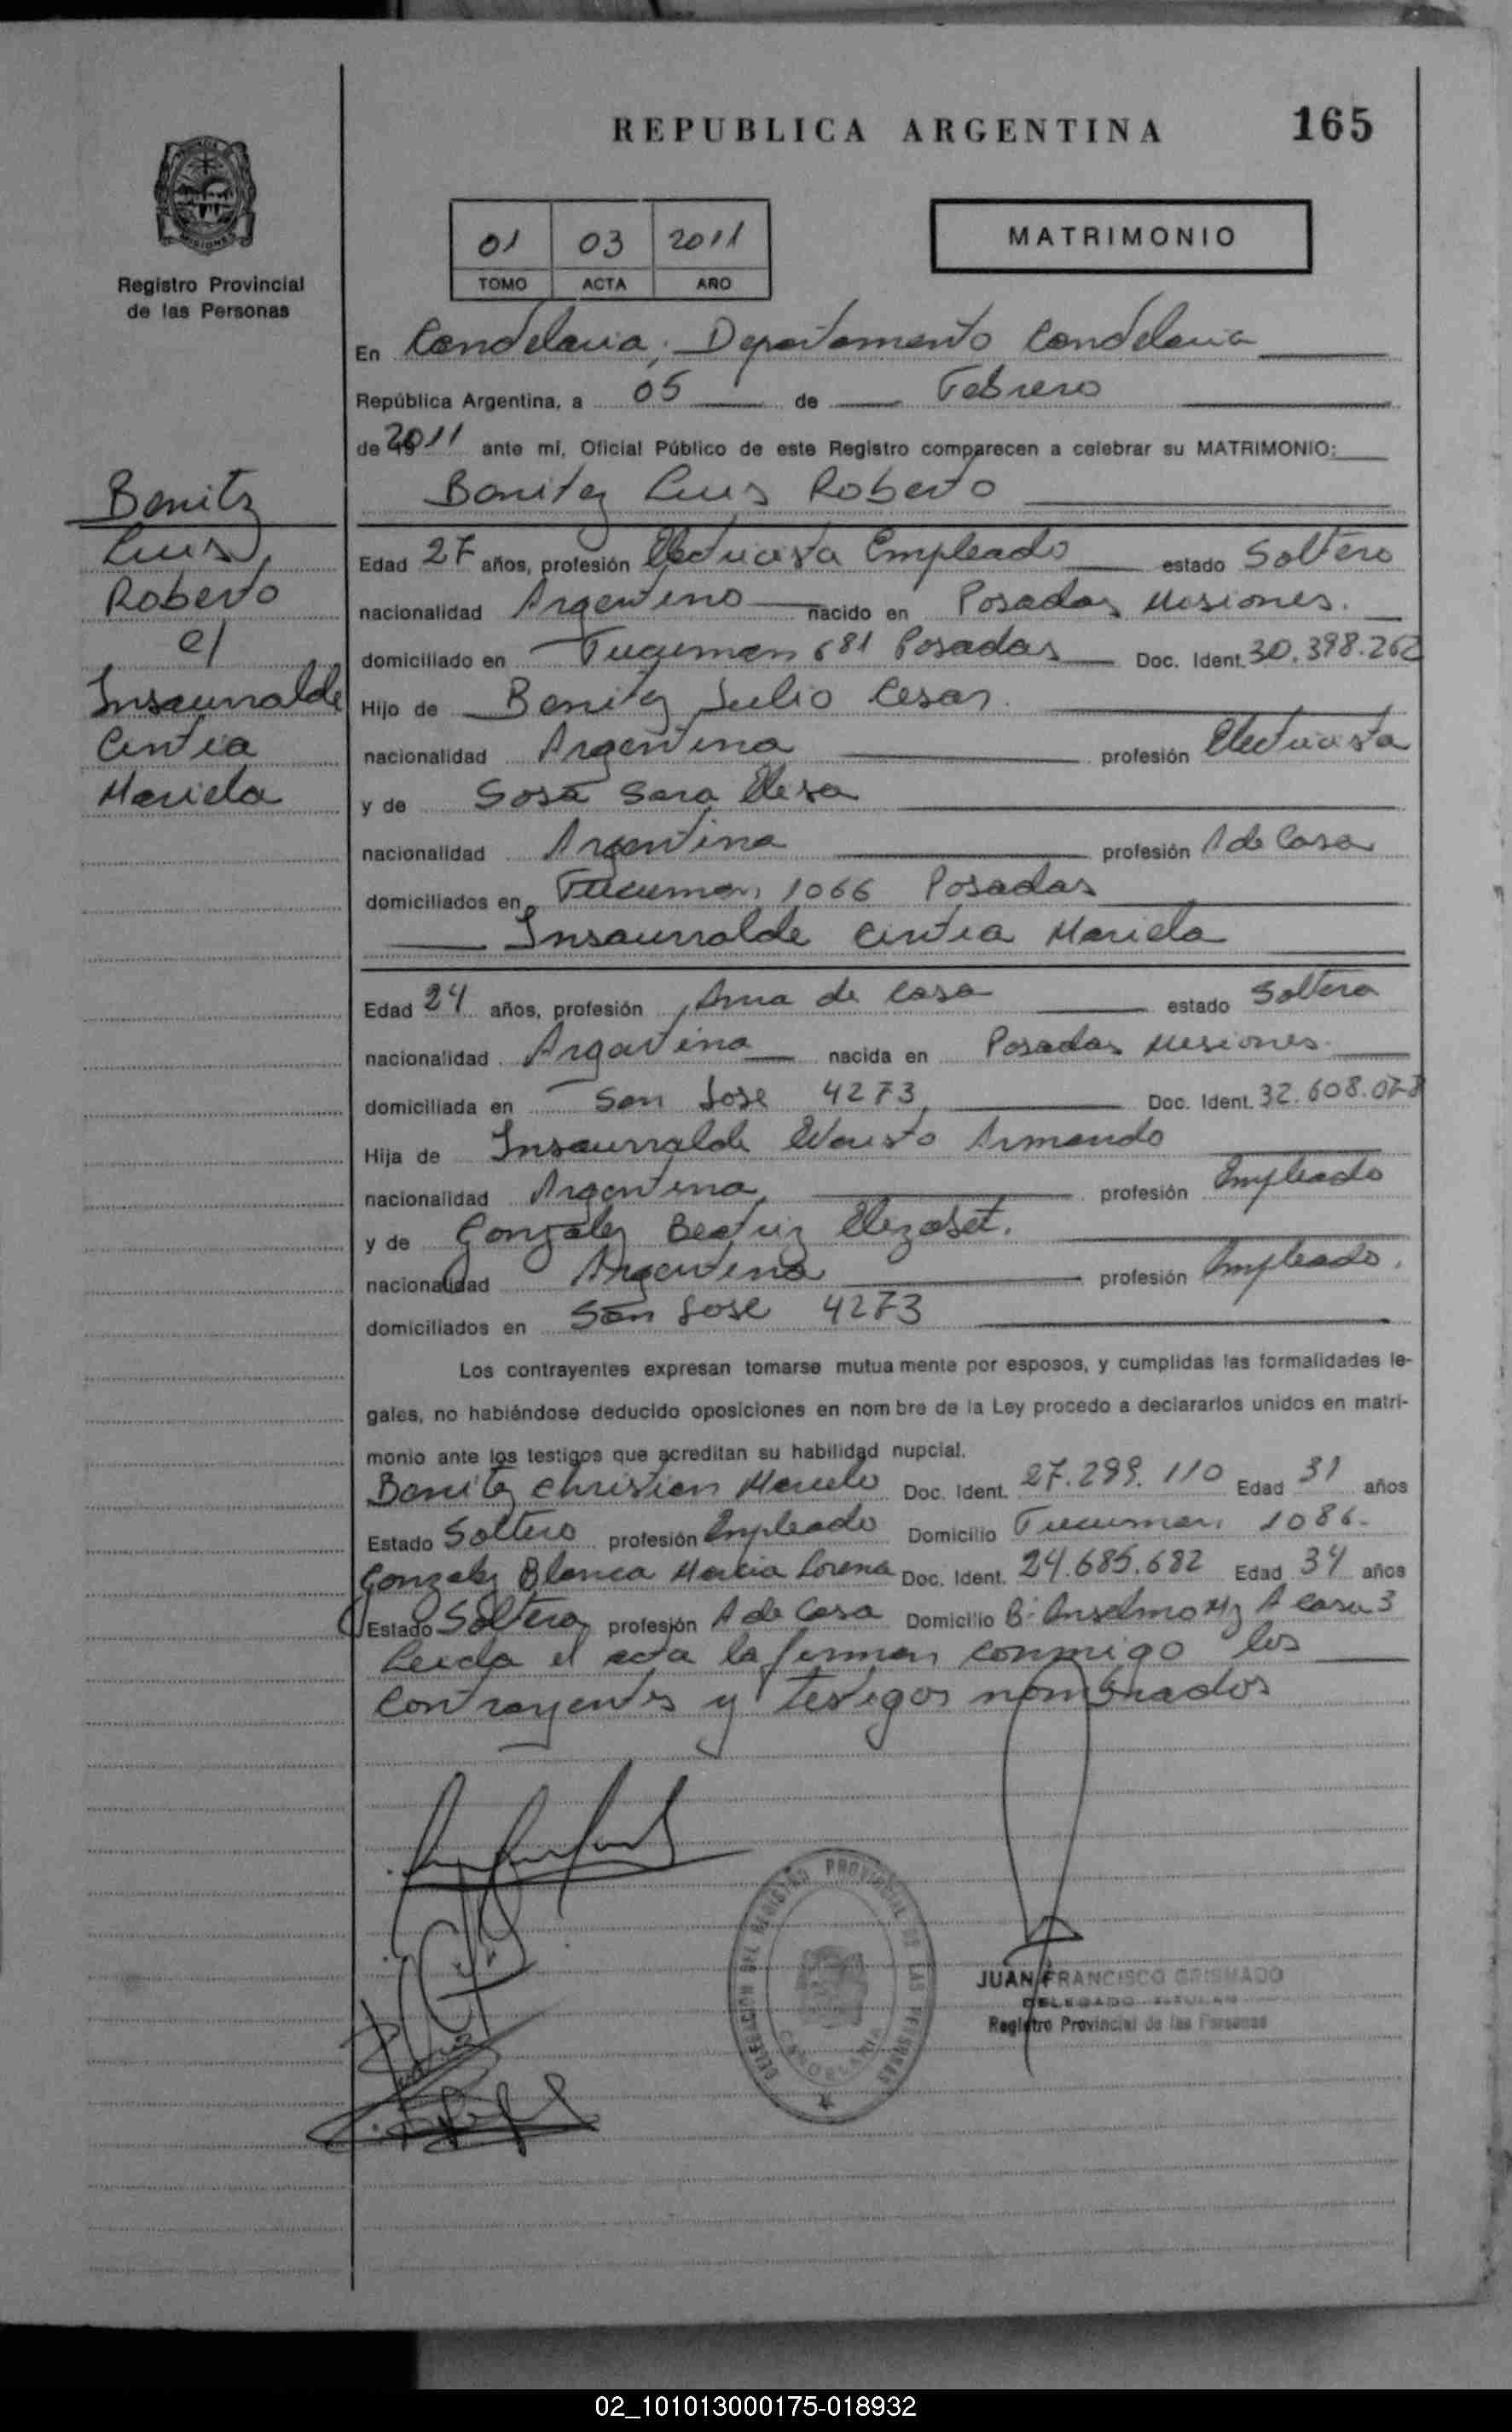 REPUBLICA ARGENTINA 165
MISIONES
Registro Provincial
de las Personas
01 03 2011
TOMO ACTA AÑO
MATRIMONIO
En Candelaria, Departamento Candelaria
República Argentina, a 05 de Febrero
de 2011 ante mí, Oficial Público de este Registro comparecen a celebrar su MATRIMONIO:
Benitez Luis Roberto
Benitz
Luis
Roberto
c/
Insaurralde
Cintia
Mariela
Edad 27 años, profesión Electricista Empleado estado Soltero
nacionalidad Argentino nacido en Posadas Misiones.
domiciliado en Tucuman 681 Posadas Doc. Ident. 30.398.262
Hijo de Benitez Julio Cesar.
nacionalidad Argentina profesión Electricista
y de Sosa Sara Elisa
nacionalidad Argentina profesión A de Casa
domiciliados en Tucuman 1066 Posadas
Insaurralde Cintia Mariela
Edad 24 años, profesión Ama de casa estado Soltera
nacionalidad Argentina nacida en Posadas Misiones.
domiciliada en San Jose 4273 Doc. Ident. 32.608.078
Hija de Insaurralde Evaristo Armando
nacionalidad Argentina profesión Empleado
y de Gonzalez Beatriz Elizabet.
nacionalidad Argentina profesión Empleado.
domiciliados en San Jose 4273
Los contrayentes expresan tomarse mutua mente por esposos, y cumplidas las formalidades le-
gales, no habiéndose deducido oposiciones en nom bre de la Ley procedo a declararlos unidos en matri-
monio ante los testigos que acreditan su habilidad nupcial.
Benitez Christian Marcelo Doc. Ident. 27.299.110 Edad 31 años
Estado Soltero profesión Empleado Domicilio Tucuman 1086.
Gonzalez Blanca Maria Lorena Doc. Ident. 24.685.682 Edad 34 años
Estado Soltera profesión A de Casa Domicilio B: Anselmo Mz A casa 3
Leida el acta la firman conmigo los
contrayentes y testigos nombrados
DELEGACION DEL REGISTRO PROVINCIAL DE LAS PERSONAS
CANDELARIA
JUAN FRANCISCO GRISMADO
DELEGADO TITULAR
Registro Provincial de las Personas
02_101013000175-018932